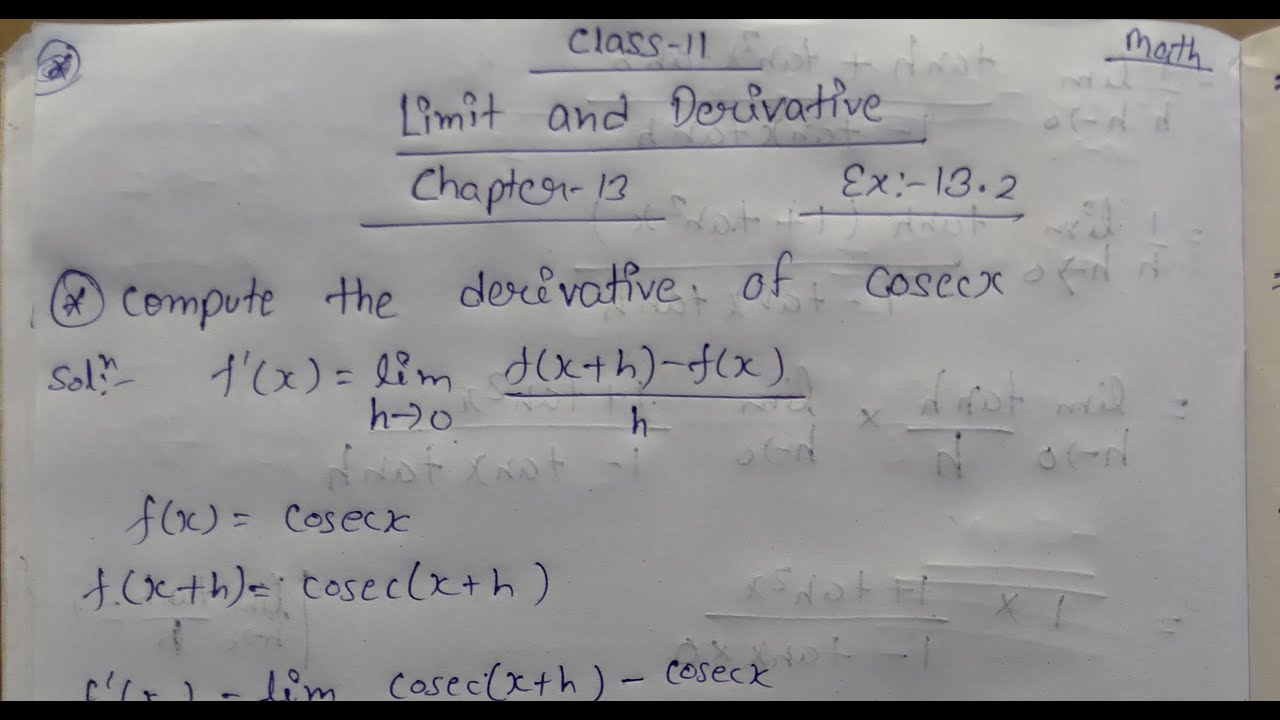 Class-11
Math
Limit and Derivative
Chapter-13 Ex:-13.2
* Compute the derivative of cosecx
Solⁿ:- f'(x) = lim f(x+h)-f(x)
h→0 h
f(x) = cosecx
f(x+h) = cosec(x+h)
f'(x) = lim cosec(x+h) - cosecx